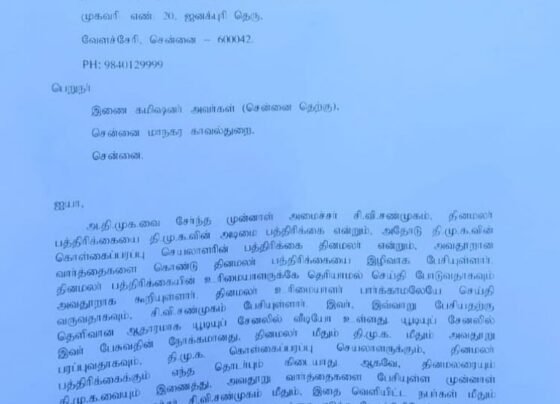 முகவரி எண். 20, ஜனக்புரி தெரு,
வேளச்சேரி, சென்னை – 600042.
PH: 9840129999
பெறுநர்
இணை கமிஷனர் அவர்கள் (சென்னை தெற்கு),
சென்னை மாநகர காவல்துறை,
சென்னை.
ஐயா,
அ.தி.மு.க.வை சேர்ந்த முன்னாள் அமைச்சர் சி.வி.சண்முகம், தினமலர்
பத்திரிக்கையை தி.மு.க.வின் அடிமை பத்திரிக்கை என்றும், அதோடு தி.மு.க.வின்
கொள்கைப்பரப்பு செயலாளரின் பத்திரிக்கை தினமலர் என்றும், அவதூறான
வார்த்தைகளை கொண்டு தினமலர் பத்திரிக்கையை இழிவாக பேசியுள்ளார்.
தினமலர் பத்திரிக்கையின் உரிமையாளருக்கே தெரியாமல் செய்தி போடுவதாகவும்
அவதூறாக கூறியுள்ளார். தினமலர் உரிமையாளர் பார்க்காமலேயே செய்தி
வருவதாகவும், சி.வி.சண்முகம் பேசியுள்ளார். இவர், இவ்வாறு பேசியதற்கு
தெளிவான ஆதாரமாக யூடியுப் சேனலில் வீடியோ உள்ளது. யூடியுப் சேனலில்
இவர் பேசுவதின் நோக்கமானது, தினமலர் மீதும் தி.மு.க. மீதும் அவதூறு
பரப்புவதாகவும், தி.மு.க. கொள்கைப்பரப்பு செயலாளருக்கும், தினமலர்
பத்திரிக்கைக்கும் எந்த தொடர்பும் கிடையாது ஆகவே, தினமலரையும்
தி.மு.க.வையும் இணைத்து, அவதூறு வார்த்தைகளை பேசியுள்ள முன்னாள்
சி.வி.சண்முகம் மீதும், இதை வெளியிட்ட நபர்கள் மீதும்